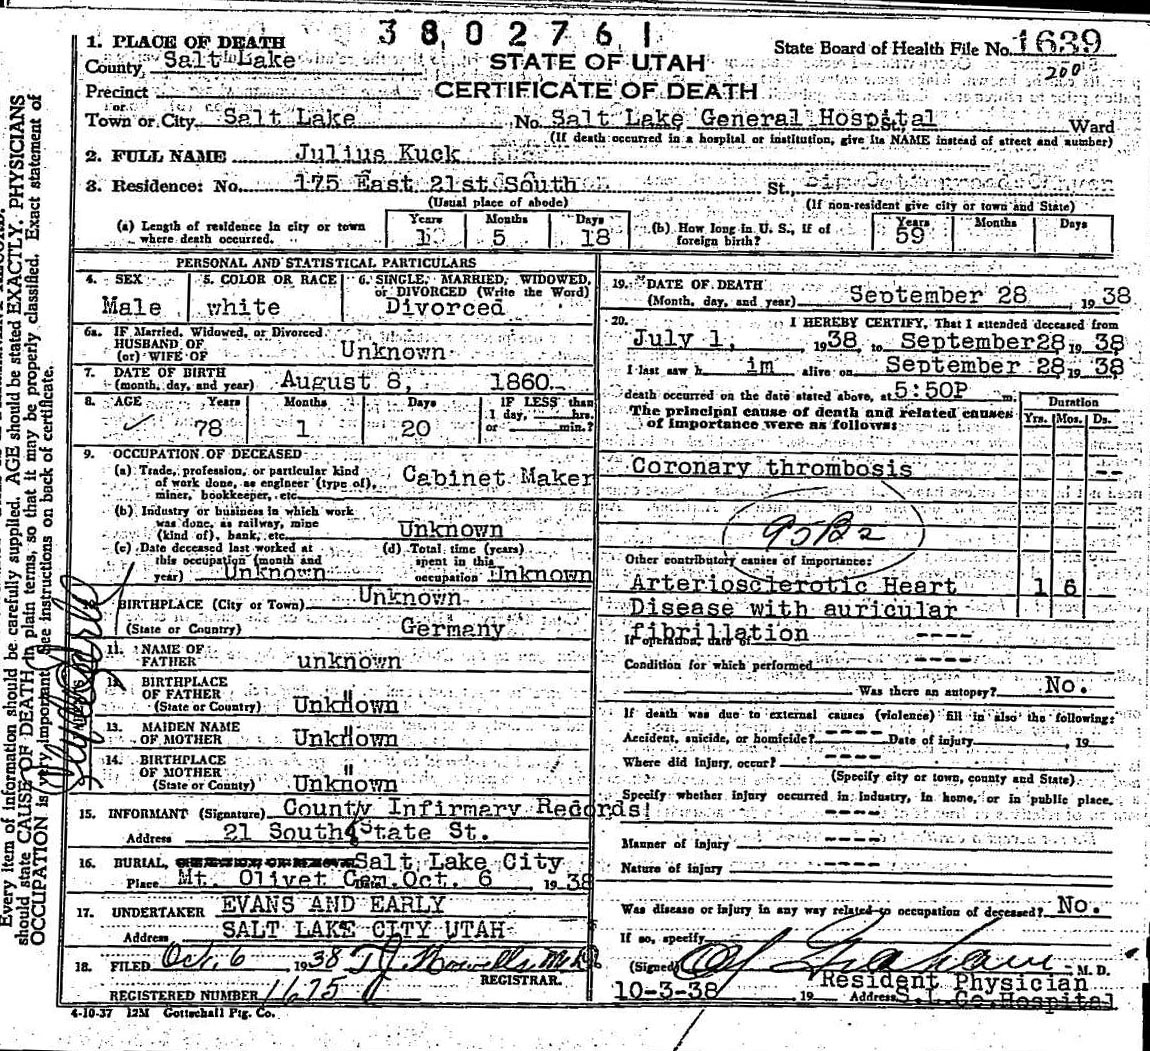 3802761
1. PLACE OF DEATH
State Board of Health File No. 1639
County Salt Lake
STATE OF UTAH
200
Precinct
CERTIFICATE OF DEATH
or
Town or City Salt Lake No. Salt Lake General Hospital St., Ward
(If death occurred in a hospital or institution, give its NAME instead of street and number)
2. FULL NAME Julius Kuck
3. Residence: No. 175 East 21st South St.,
(Usual place of abode) (If non-resident give city or town and State)
(a) Length of residence in city or town where death occurred. Years 1 Months 5 Days 18 (b) How long in U. S., if of foreign birth? Years 59 Months Days
PERSONAL AND STATISTICAL PARTICULARS
4. SEX Male
5. COLOR OR RACE white
6. SINGLE, MARRIED, WIDOWED, or DIVORCED (Write the Word) Divorced
6a. IF Married, Widowed, or Divorced
HUSBAND OF
(or) WIFE OF Unknown
7. DATE OF BIRTH
(month, day, and year) August 8, 1860
8. AGE Years 78 Months 1 Days 20 IF LESS than 1 day, hrs. or min.?
9. OCCUPATION OF DECEASED
(a) Trade, profession, or particular kind of work done, as engineer (type of), miner, bookkeeper, etc. Cabinet Maker
(b) Industry or business in which work was done, as railway, mine (kind of), bank, etc. Unknown
(c) Date deceased last worked at this occupation (month and year) Unknown
(d) Total time (years) spent in this occupation Unknown
10. BIRTHPLACE (City or Town) Unknown
(State or Country) Germany
11. NAME OF FATHER unknown
12. BIRTHPLACE OF FATHER
(State or Country) Unknown
13. MAIDEN NAME OF MOTHER Unknown
14. BIRTHPLACE OF MOTHER
(State or County) Unknown
15. INFORMANT (Signature) County Infirmary Records!
Address 21 South State St.
16. BURIAL, Salt Lake City
Place Mt. Olivet Cem. Oct. 6 1938
17. UNDERTAKER EVANS AND EARLY
Address SALT LAKE CITY UTAH
18. FILED Oct. 6 1938
REGISTRAR.
REGISTERED NUMBER 1675
4-10-37 12M Gottschall Ptg. Co.
19. DATE OF DEATH
(Month, day, and year) September 28, 1938
20. I HEREBY CERTIFY, That I attended deceased from
July 1, 1938 to September 28, 1938
I last saw h im alive on September 28, 1938
death occurred on the date stated above, at 5:50P m.
The principal cause of death and related causes of importance were as follows:
Duration
Yrs. Mos. Ds.
Coronary thrombosis --
95B2
Other contributory causes of importance:
Arteriosclerotic Heart 1 6
Disease with auricular
fibrillation
If operation, date of ----
Condition for which performed ----
Was there an autopsy? No.
If death was due to external causes (violence) fill in also the following:
Accident, suicide, or homicide? ---- Date of injury , 19
Where did injury occur? ----
(Specify city or town, county and State)
Specify whether injury occurred in industry, in home, or in public place.
----
Manner of injury ----
Nature of injury ----
Was disease or injury in any way related to occupation of deceased? No.
If so, specify
(Signed) Graham M. D.
Resident Physician
10-3-38 , 19 Address S.L.Co.Hospital
Every item of information should be carefully supplied. AGE should be stated EXACTLY. PHYSICIANS
should state CAUSE OF DEATH in plain terms, so that it may be properly classified. Exact statement of
OCCUPATION is very important. See instructions on back of certificate.